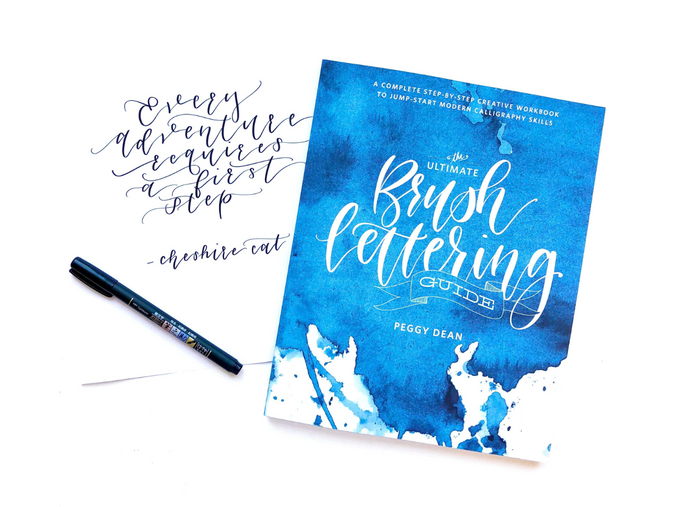 Every
adventure
requires
a first
step
- cheshire cat
A COMPLETE STEP-BY-STEP CREATIVE WORKBOOK
TO JUMP-START MODERN CALLIGRAPHY SKILLS
the
ULTIMATE
Brush
lettering
GUIDE
PEGGY DEAN